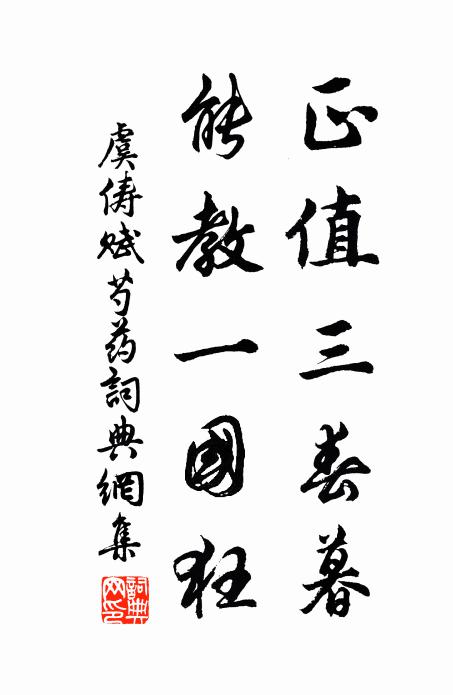 正值三春暮
能教一國狂
虞儔賦芍药詞典網集
詞典網印